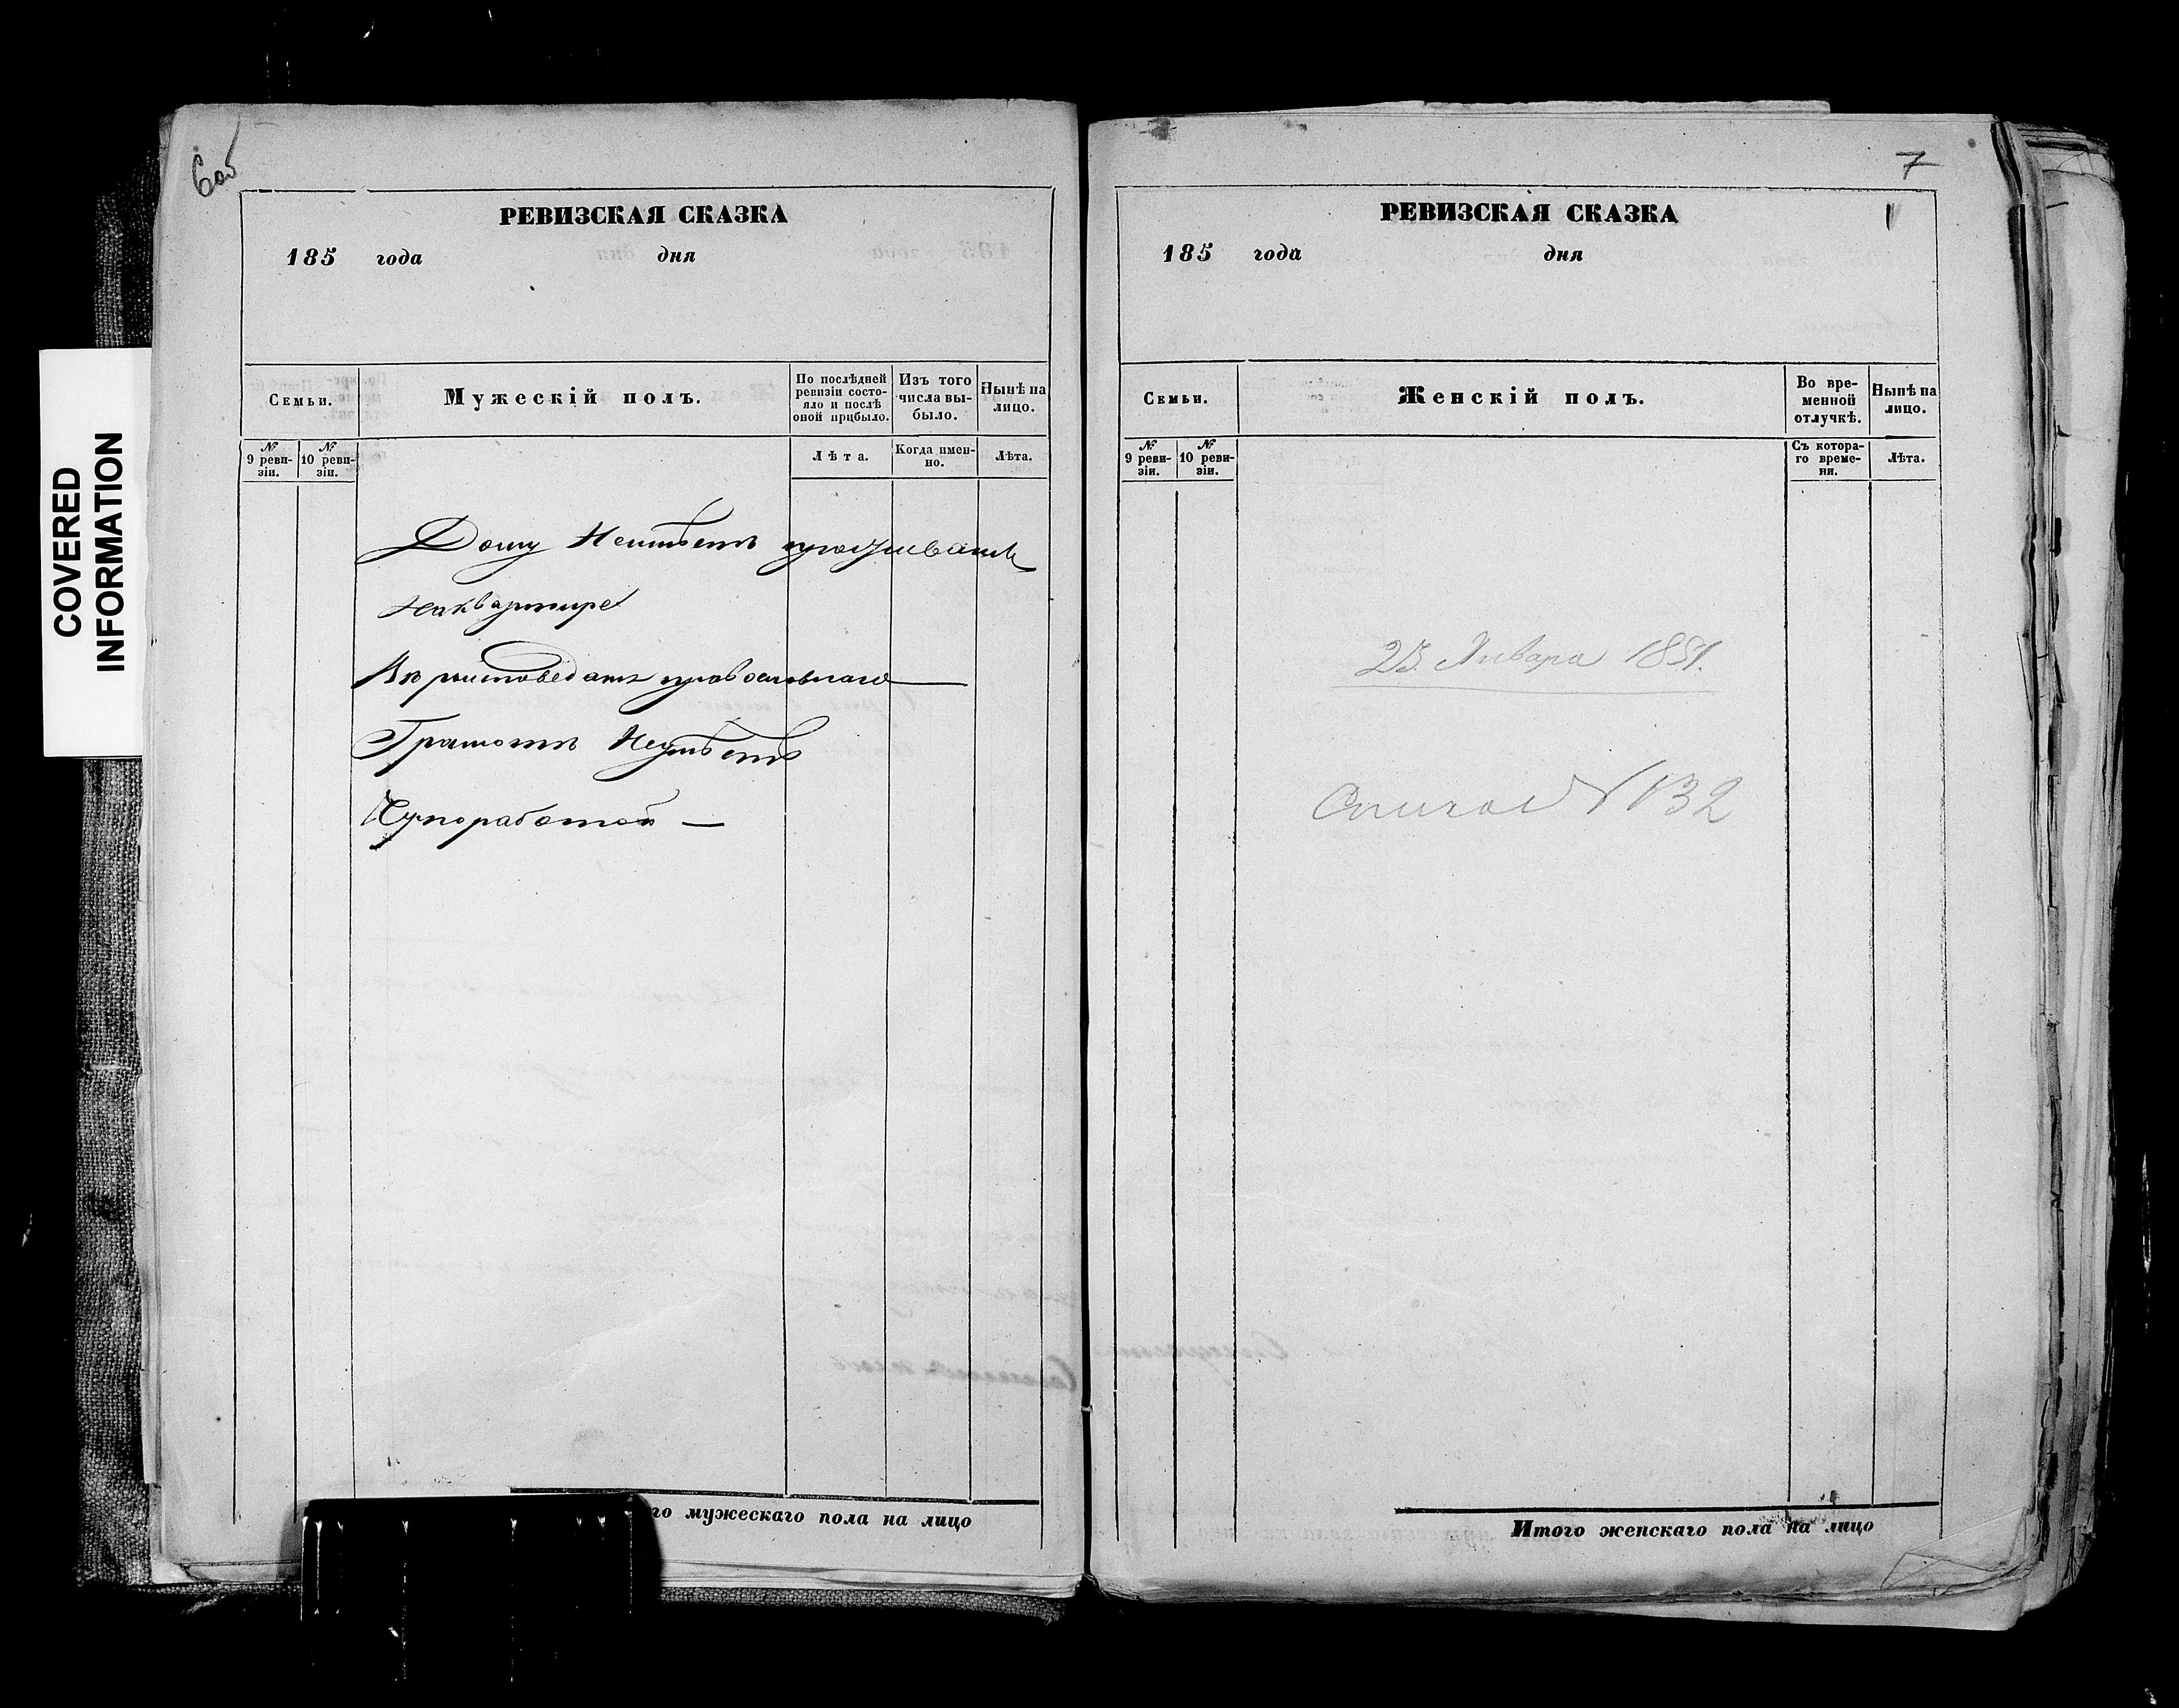 COVERED
INFORMATION
6об
РЕВИЗСКАЯ СКАЗКА
185 года дня
Семьи.
Мужескій полъ.
По послѣдней ревизіи состояло и послѣ оной прибыло.
Изъ того числа выбыло.
Нынѣ на лицо.
№ 9 ревизіи.
№ 10 ревизіи.
Лѣта.
Когда именно.
Лѣта.
Дому Неимѣетъ проживаетъ
наквартире
Вероисповеданія православнаго
Грамотъ Неумѣетъ
го мужескаго пола на лицо
7
РЕВИЗСКАЯ СКАЗКА
185 года дня
Семьи.
Женскій полъ.
Во временной отлучкѣ.
Нынѣ на лицо.
№ 9 ревизіи.
№ 10 ревизіи.
Съ котораго времени.
Лѣта.
25 Января 1851.
Список N 132
Итого женскаго пола на лицо